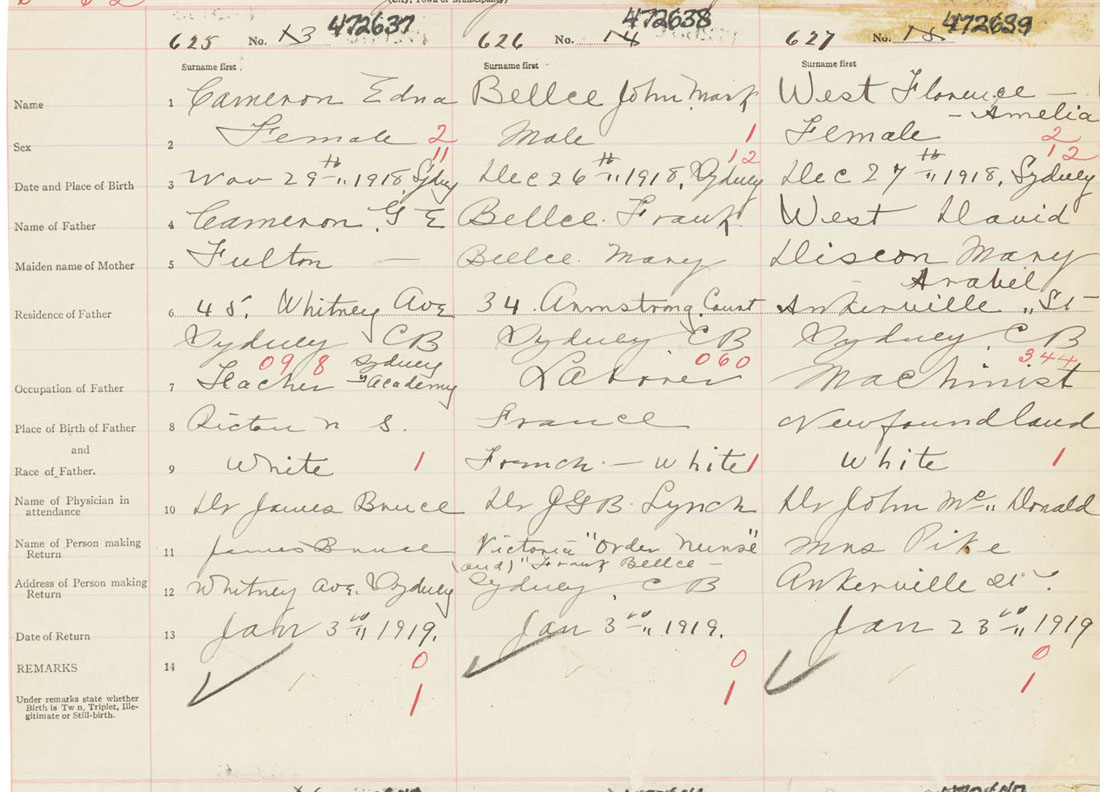 (City, Town or Municipality)
472637 472638 472639
625 No. 13 626 No. 14 627 No. 15
Surname first Surname first Surname first
Name 1 Cameron Edna Bellee John Mark West Florence —
- Amelia
Sex 2 Female 2 Male 1 Female 2
11 12 12
Date and Place of Birth 3 Nov 29th " 1918, Sydney Dec 26th " 1918, Sydney Dec 27th " 1918, Sydney
Name of Father 4 Cameron, G E Bellee. Frank West David
Maiden name of Mother 5 Fulton — Bellee. Mary Discon Mary
- Arabel
Residence of Father 6 45, Whitney Ave 34 Armstrong Court Ankerville " St
Sydney CB Sydney CB Sydney, CB
098 Sydney 060 344
Occupation of Father 7 Teacher " Academy Laborer Machinist
Place of Birth of Father 8 Pictou N S. France Newfoundland
and
Race of Father. 9 White 1 French - White 1 White 1
Name of Physician in
attendance 10 Dr James Bruce Dr J G B. Lynch Dr John Mc " Donald
Name of Person making
Return 11 James Bruce Victoria "Order Nurse" Mrs Pike
(and) " Frank Bellee -
Address of Person making
Return 12 Whitney Ave. Sydney Sydney, CB Ankerville St
Date of Return 13 Jan 3 " 1919. Jan 3 " 1919. Jan 23 " 1919
REMARKS 14 0 0 0
Under remarks state whether
Birth is Twin, Triplet, Ille-
gitimate or Still-birth.
1 1 1